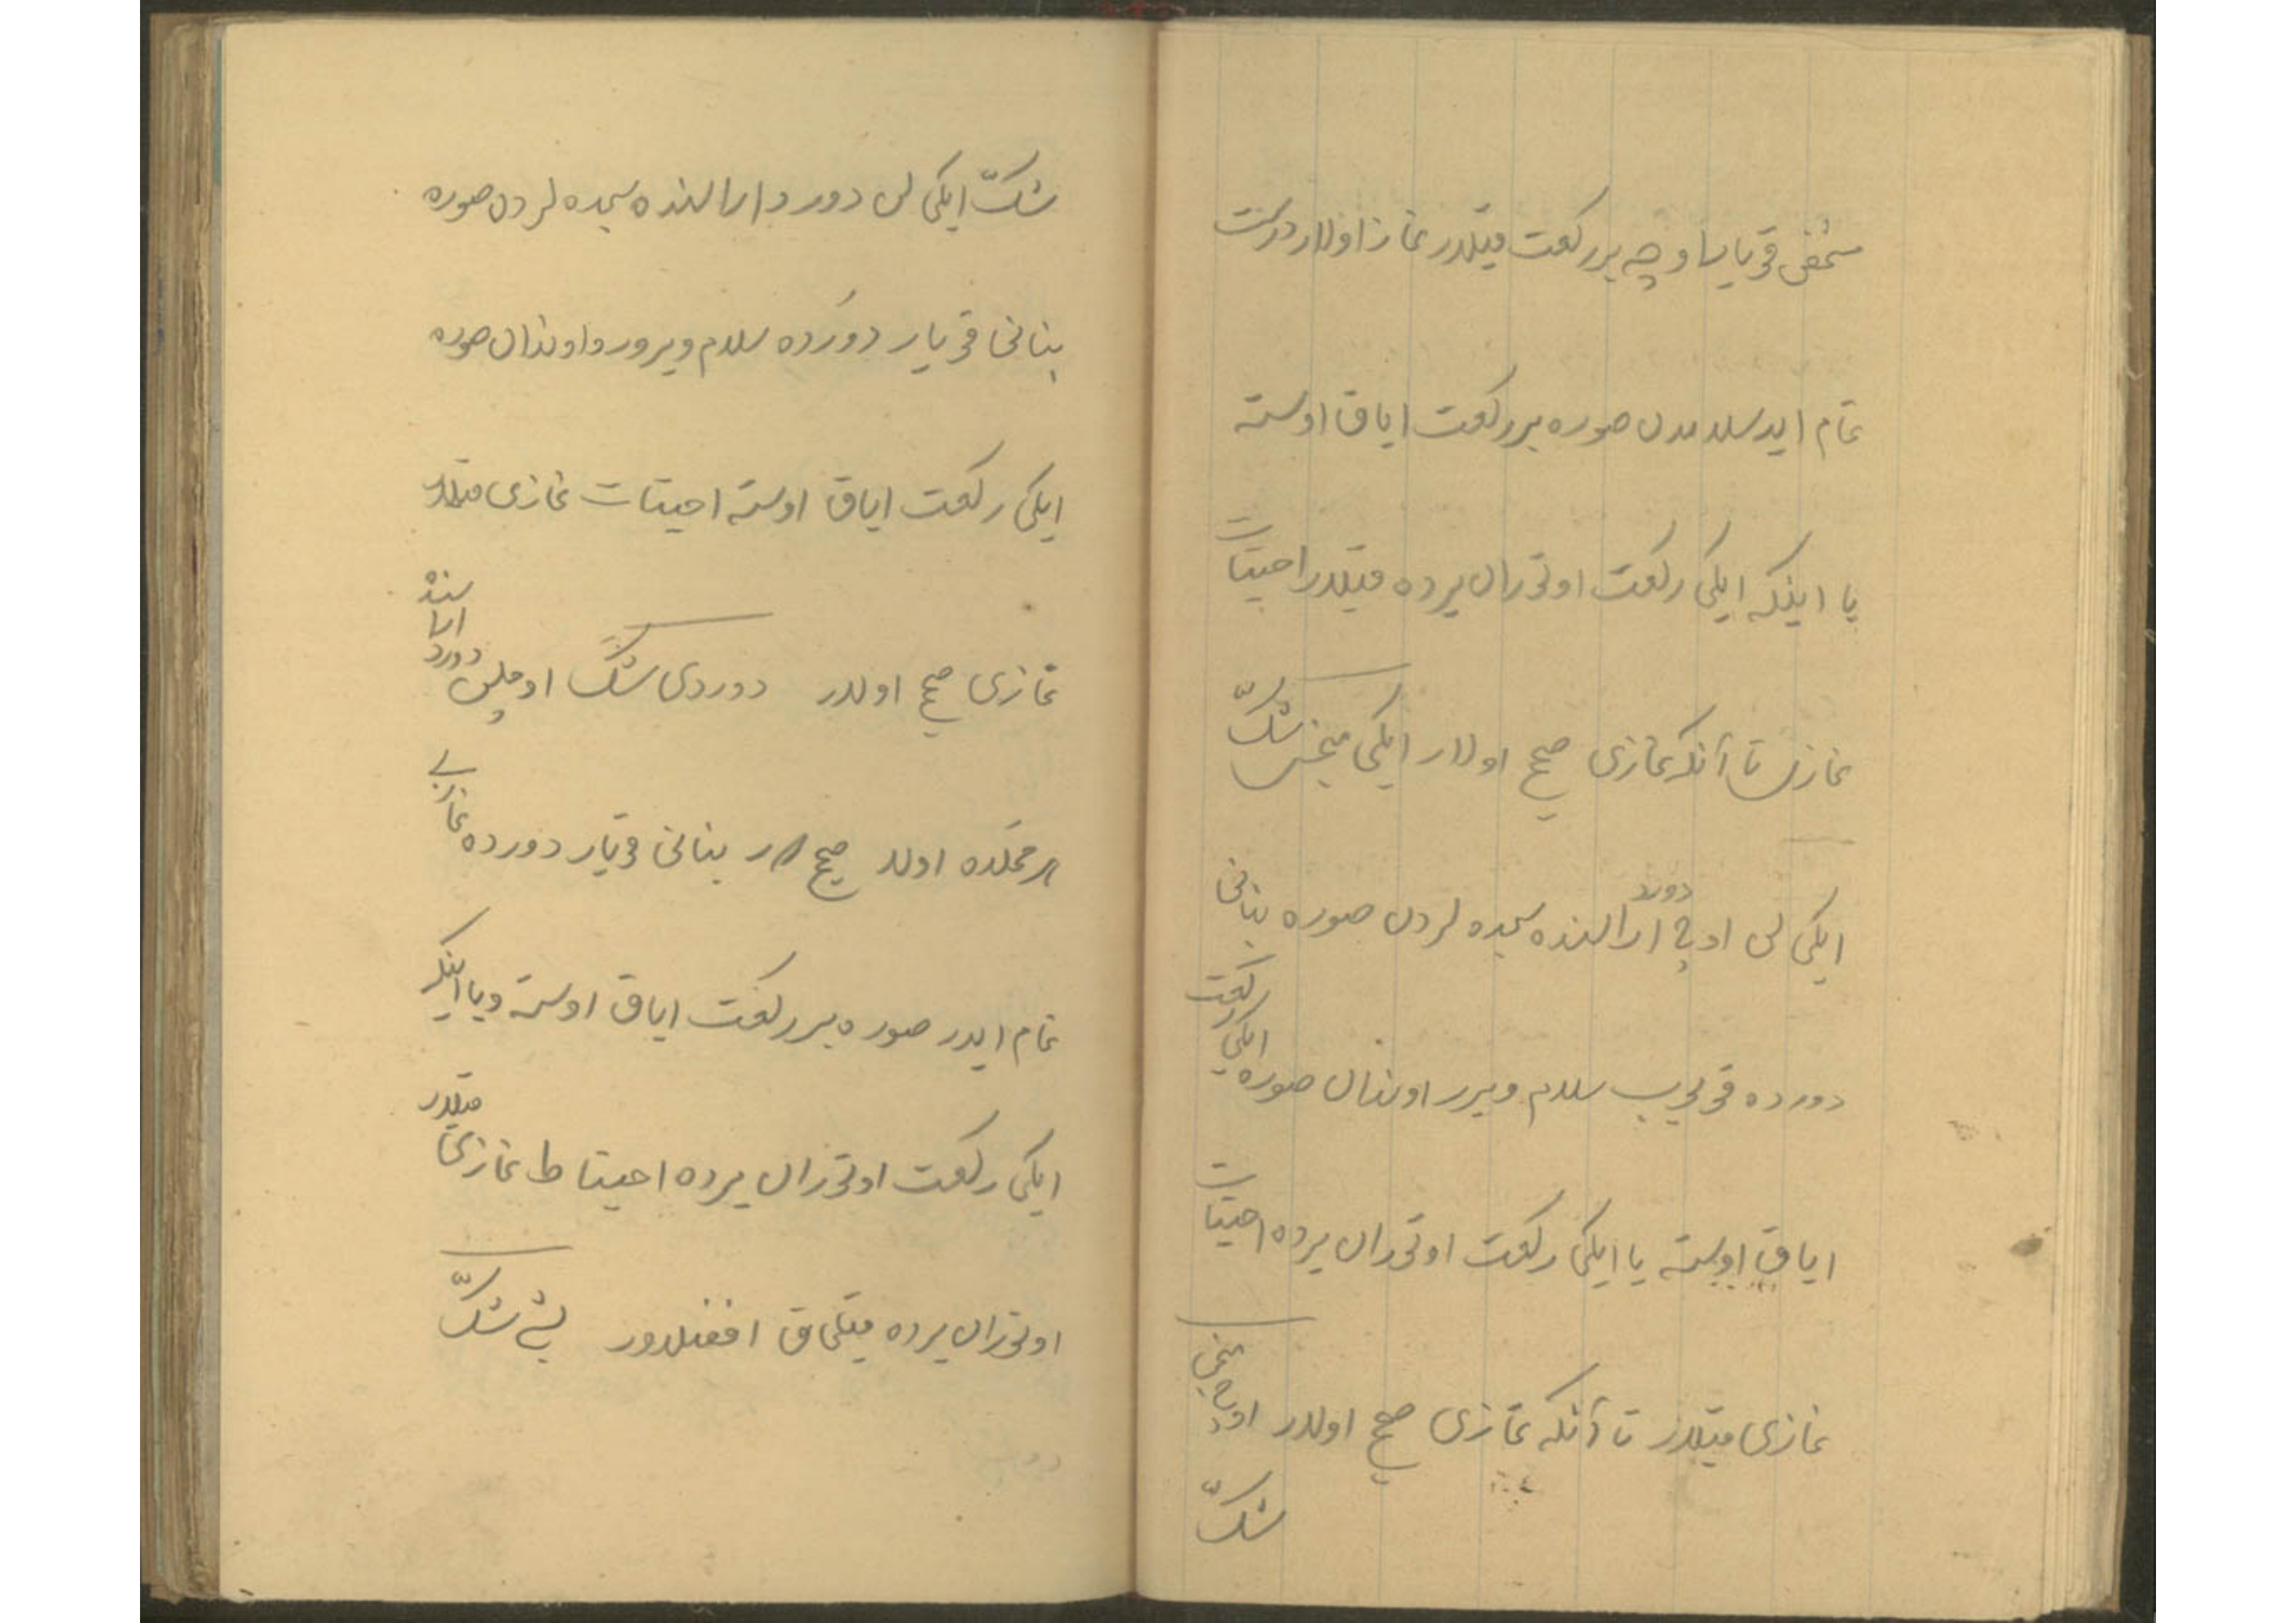 شخص قویا بنا وچه بیر رکعت قیلدر نماز اولار درست
تمام ایدر سلامدن صوره بر رکعت ایاق اوسته
یا اینکه ایکی رکعت اوتوران یرده قیلدر احتیات
نمازی تا آنکه نمازی صحیح اولار ایکیمنجی شکّ
ایکی لن اوچ دورد ارالقنده سجده لردن صوره بنانی
دورده قویوب سلام ویرر اوندان صوره ایکی رکعت
ایاق اوسته یا ایکی رکعت اوتوران یرده احتیات
نمازی قیلدر تا آنکه نمازی صحیح اولدر اوچمنجی
شکّ
شکّ ایکی لن دورد ارالقنده سجده لردن صوره
بنانی قویار دورده سلام ویرور و اوندان صوره
ایکی رکعت ایاق اوسته احیتات نمازی قیلدر
نمازی صحیح اولدر دوردی شک اوچلن دورد اراسنده
هر محلده اولد صحیح در بنانی قویار دورده نمازی
تمام ایدر صوره بیر رکعت ایاق اوسته ویا اینکه
ایکی رکعت اوتوران یرده احیتاط نمازی قیلدر
اوتوران یرده قیلماق افضلدور بش شکّ